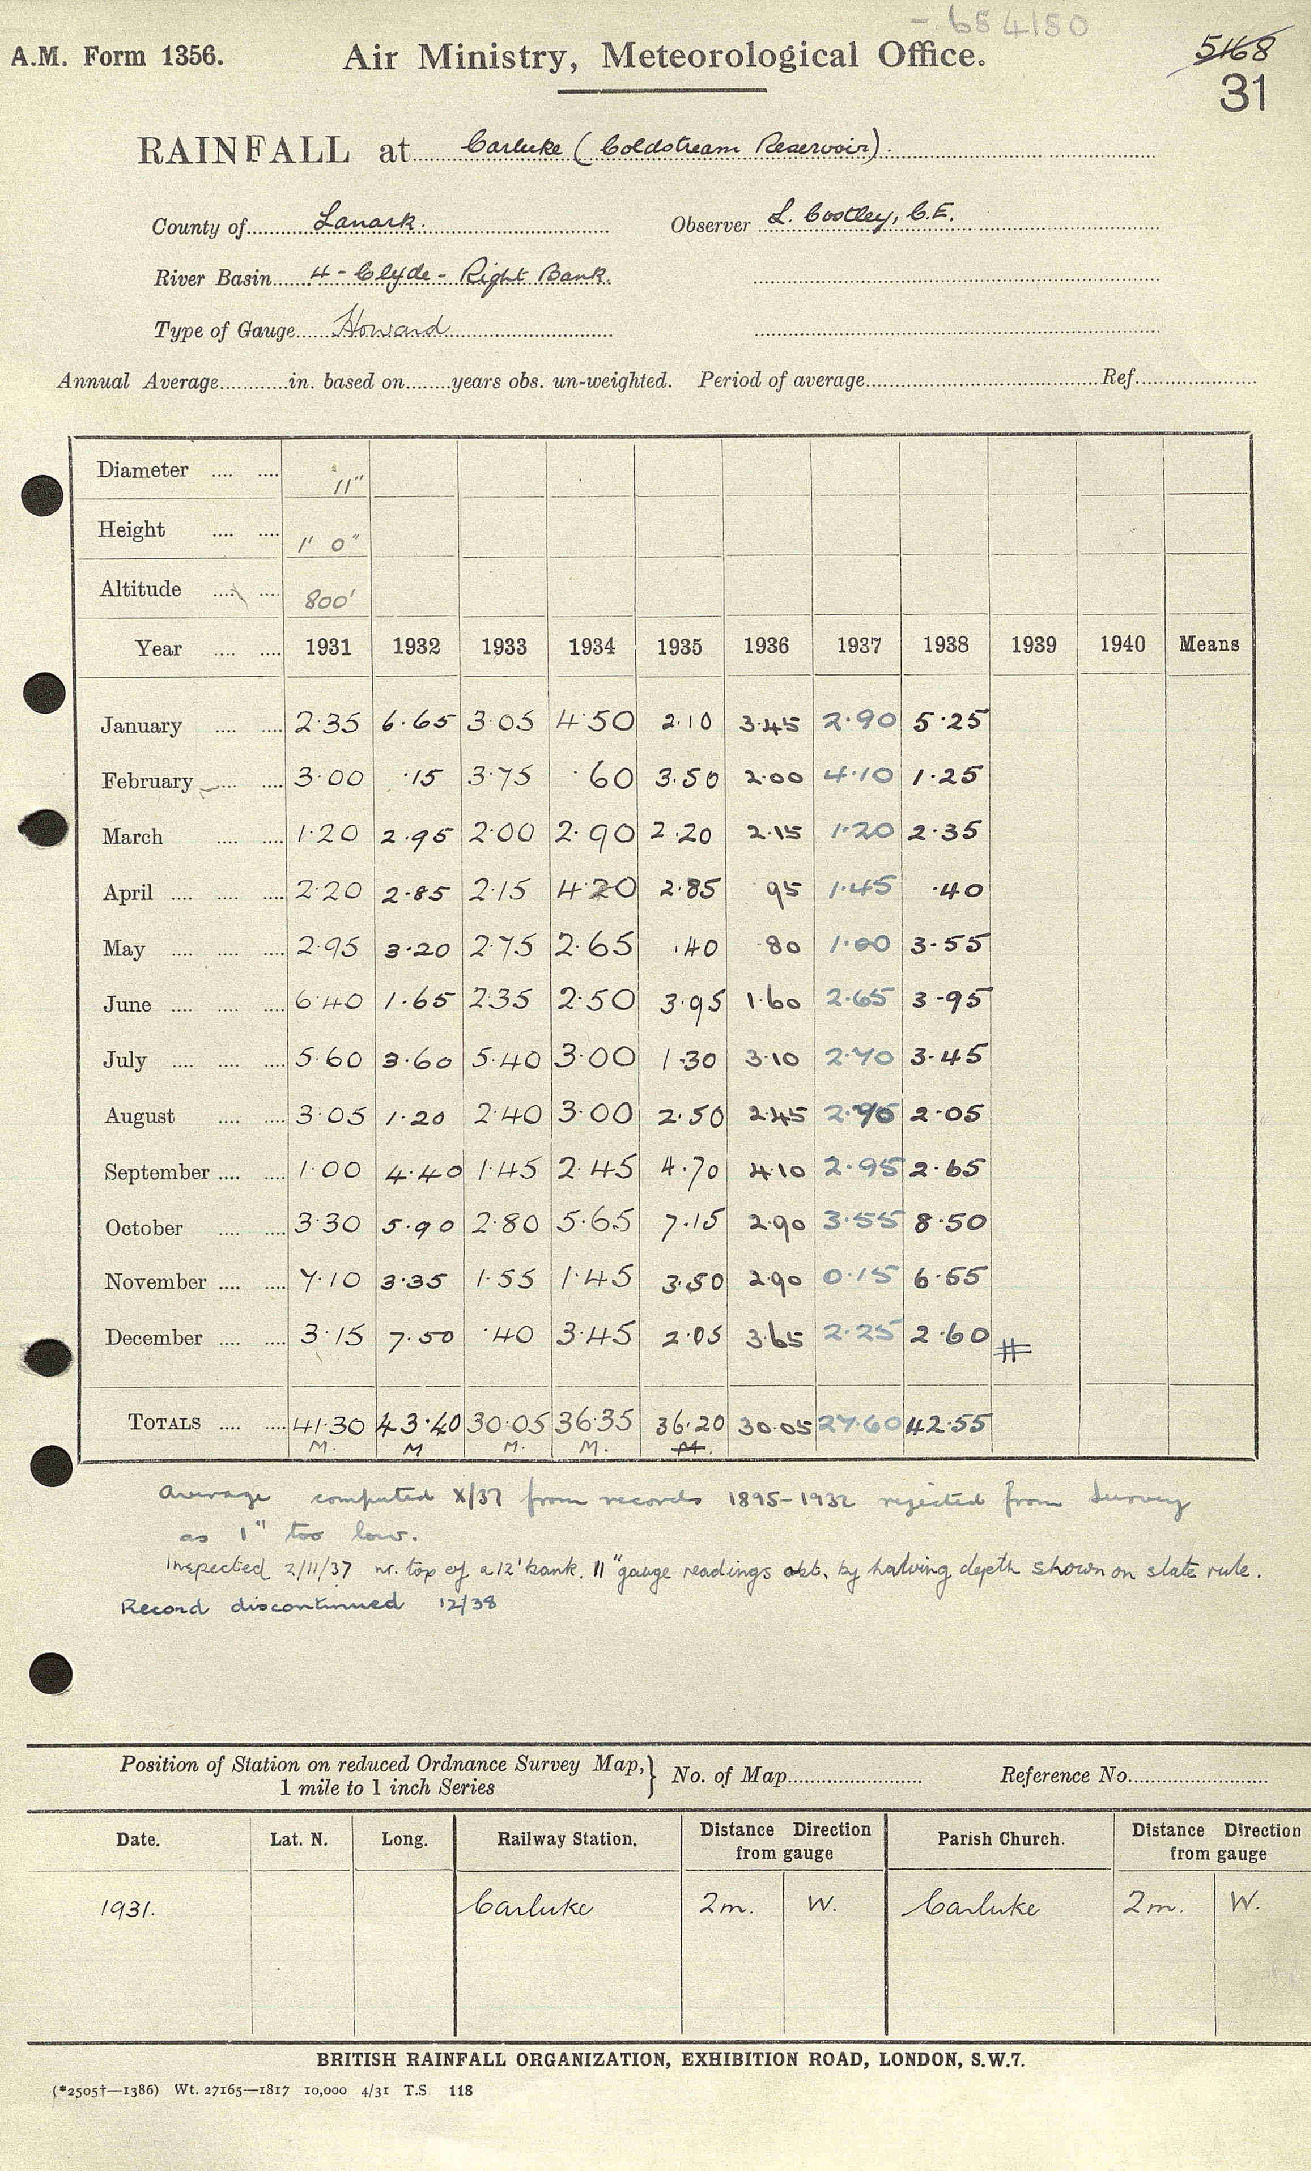 - 654150
A.M. Form 1356.
Air Ministry, Meteorological Office.
5168
31
RAINFALL at Carluke (Coldstream Reservoir)
County of Lanark. Observer L. Costley, C.E.
River Basin 4 - Clyde - Right Bank.
Type of Gauge Howard
Annual Average in. based on years obs. un-weighted. Period of average Ref.
Diameter 11"
Height 1' 0"
Altitude 800'
Year 1931 1932 1933 1934 1935 1936 1937 1938 1939 1940 Means
January 2.35 6.65 3.05 4.50 2.10 3.45 2.90 5.25
February 3.00 .15 3.75 .60 3.50 2.00 4.10 1.25
March 1.20 2.95 2.00 2.90 2.20 2.15 1.20 2.35
April 2.20 2.85 2.15 4.20 2.85 .95 1.45 .40
May 2.95 3.20 2.75 2.65 .40 .80 1.00 3.55
June 6.40 1.65 2.35 2.50 3.95 1.60 2.65 3.95
July 5.60 3.60 5.40 3.00 1.30 3.10 2.70 3.45
August 3.05 1.20 2.40 3.00 2.50 2.45 2.05
September 1.00 4.40 1.45 2.45 4.70 4.10 2.95 2.65
October 3.30 5.90 2.80 5.65 7.15 2.90 3.55 8.50
November 7.10 3.35 1.55 1.45 3.50 2.90 0.15 6.55
December 3.15 7.50 .40 3.45 2.05 3.65 2.25 2.60
TOTALS 41.30 43.40 30.05 36.35 36.20 30.05 27.60 42.55
M. M M. M. M.
Average computed X/37 from records 1895-1932 rejected from Survey
as 1" too low.
Inspected 2/11/37 nr. top of a 12' bank. 11" gauge readings obt. by halving depth shown on slate rule.
Record discontinued 12/38
Position of Station on reduced Ordnance Survey Map,
1 mile to 1 inch Series
No. of Map Reference No.
Date. Lat. N. Long. Railway Station. Distance Direction from gauge Parish Church. Distance Direction from gauge
1931. Carluke 2m. W. Carluke 2m. W.
BRITISH RAINFALL ORGANIZATION, EXHIBITION ROAD, LONDON, S.W.7.
(*2505†—1386) Wt. 27165—1817 10,000 4/31 T.S. 118